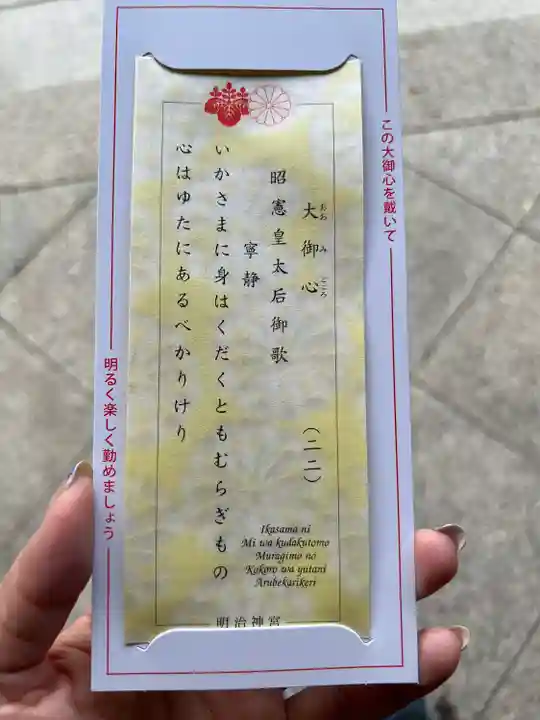 この大御心を戴いて
大御心
おおみごころ
(二二)
昭憲皇太后御歌
寧静
いかさまに身はくだくともむらぎもの
心はゆたにあるべかりけり
Ikasama ni
Mi wa kudakutomo
Muragimo no
Kokoro wa yutani
Arubekarikeri
明治神宮
明るく楽しく勤めましょう